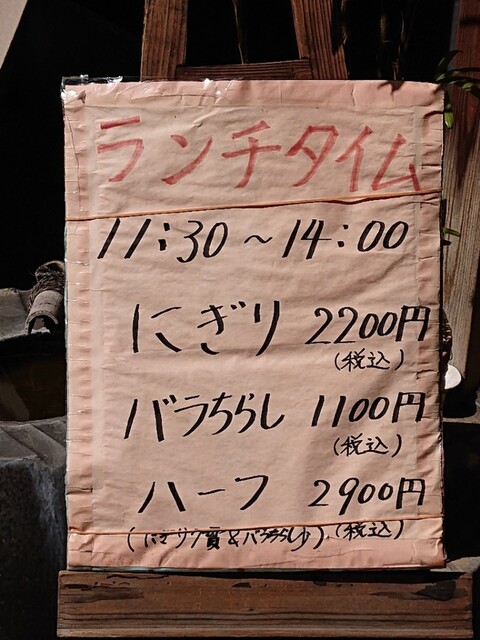 ランチタイム
11:30～14:00
にぎり 2200円
(税込)
バラちらし 1100円
(税込)
ハーフ 2900円
(にぎり7貫&バラちらし少)(税込)